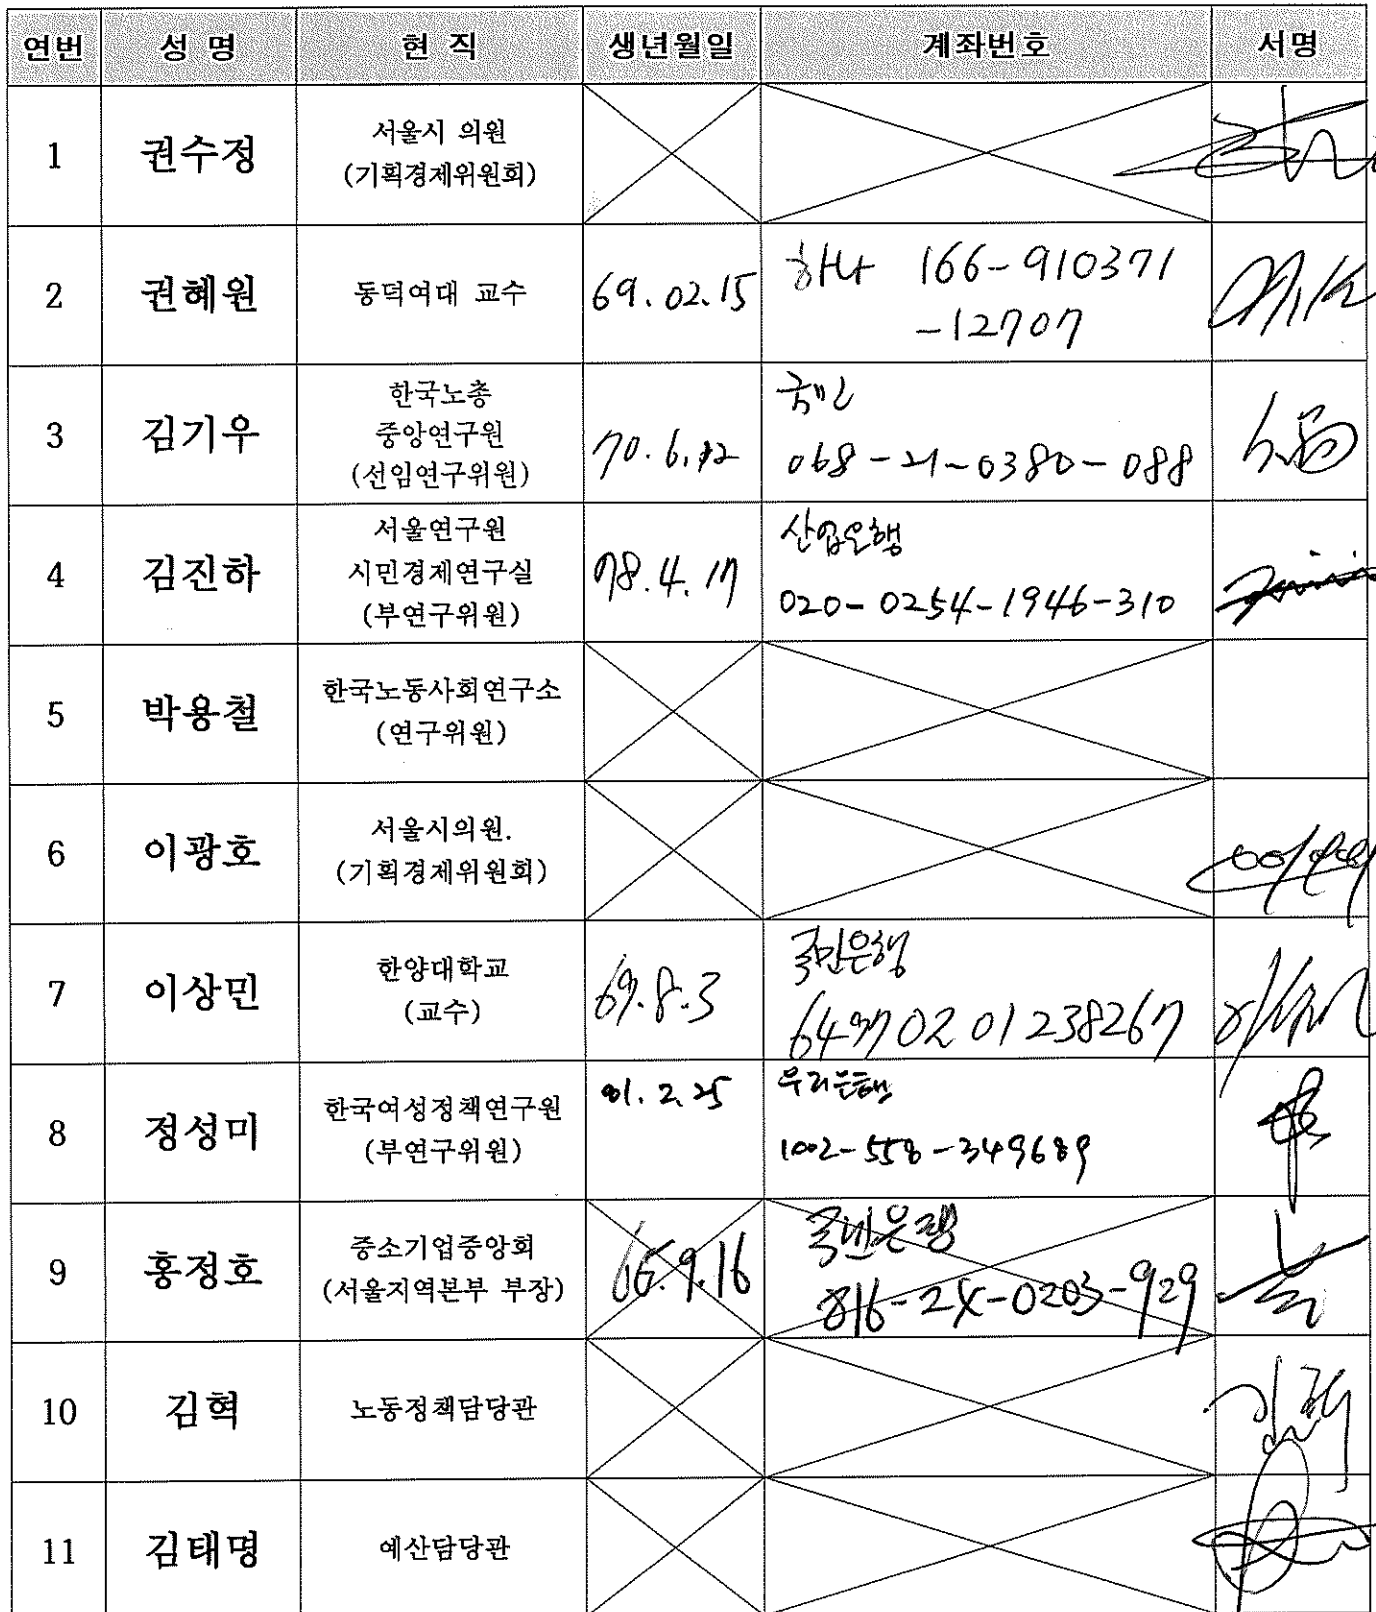 연번 성 명 현 직 생년월일 계좌번호 서명
1 권수정 서울시 의원
(기획경제위원회)
2 권혜원 동덕여대 교수 69.02.15 하나 166-910371
-12707
3 김기우 한국노총
중앙연구원
(선임연구위원) 70.6.12 국민
068-21-0380-088
4 김진하 서울연구원
시민경제연구실
(부연구위원) 78.4.17 산업은행
020-0254-1946-310
5 박용철 한국노동사회연구소
(연구위원)
6 이광호 서울시의원.
(기획경제위원회)
7 이상민 한양대학교
(교수) 69.8.3 국민은행
649702 01 238267
8 정성미 한국여성정책연구원
(부연구위원) 81.2.25 우리은행
1002-558-349689
9 홍정호 중소기업중앙회
(서울지역본부 부장) 65.9.16 국민은행
816-24-0203-929
10 김혁 노동정책담당관 김혁
11 김태명 예산담당관